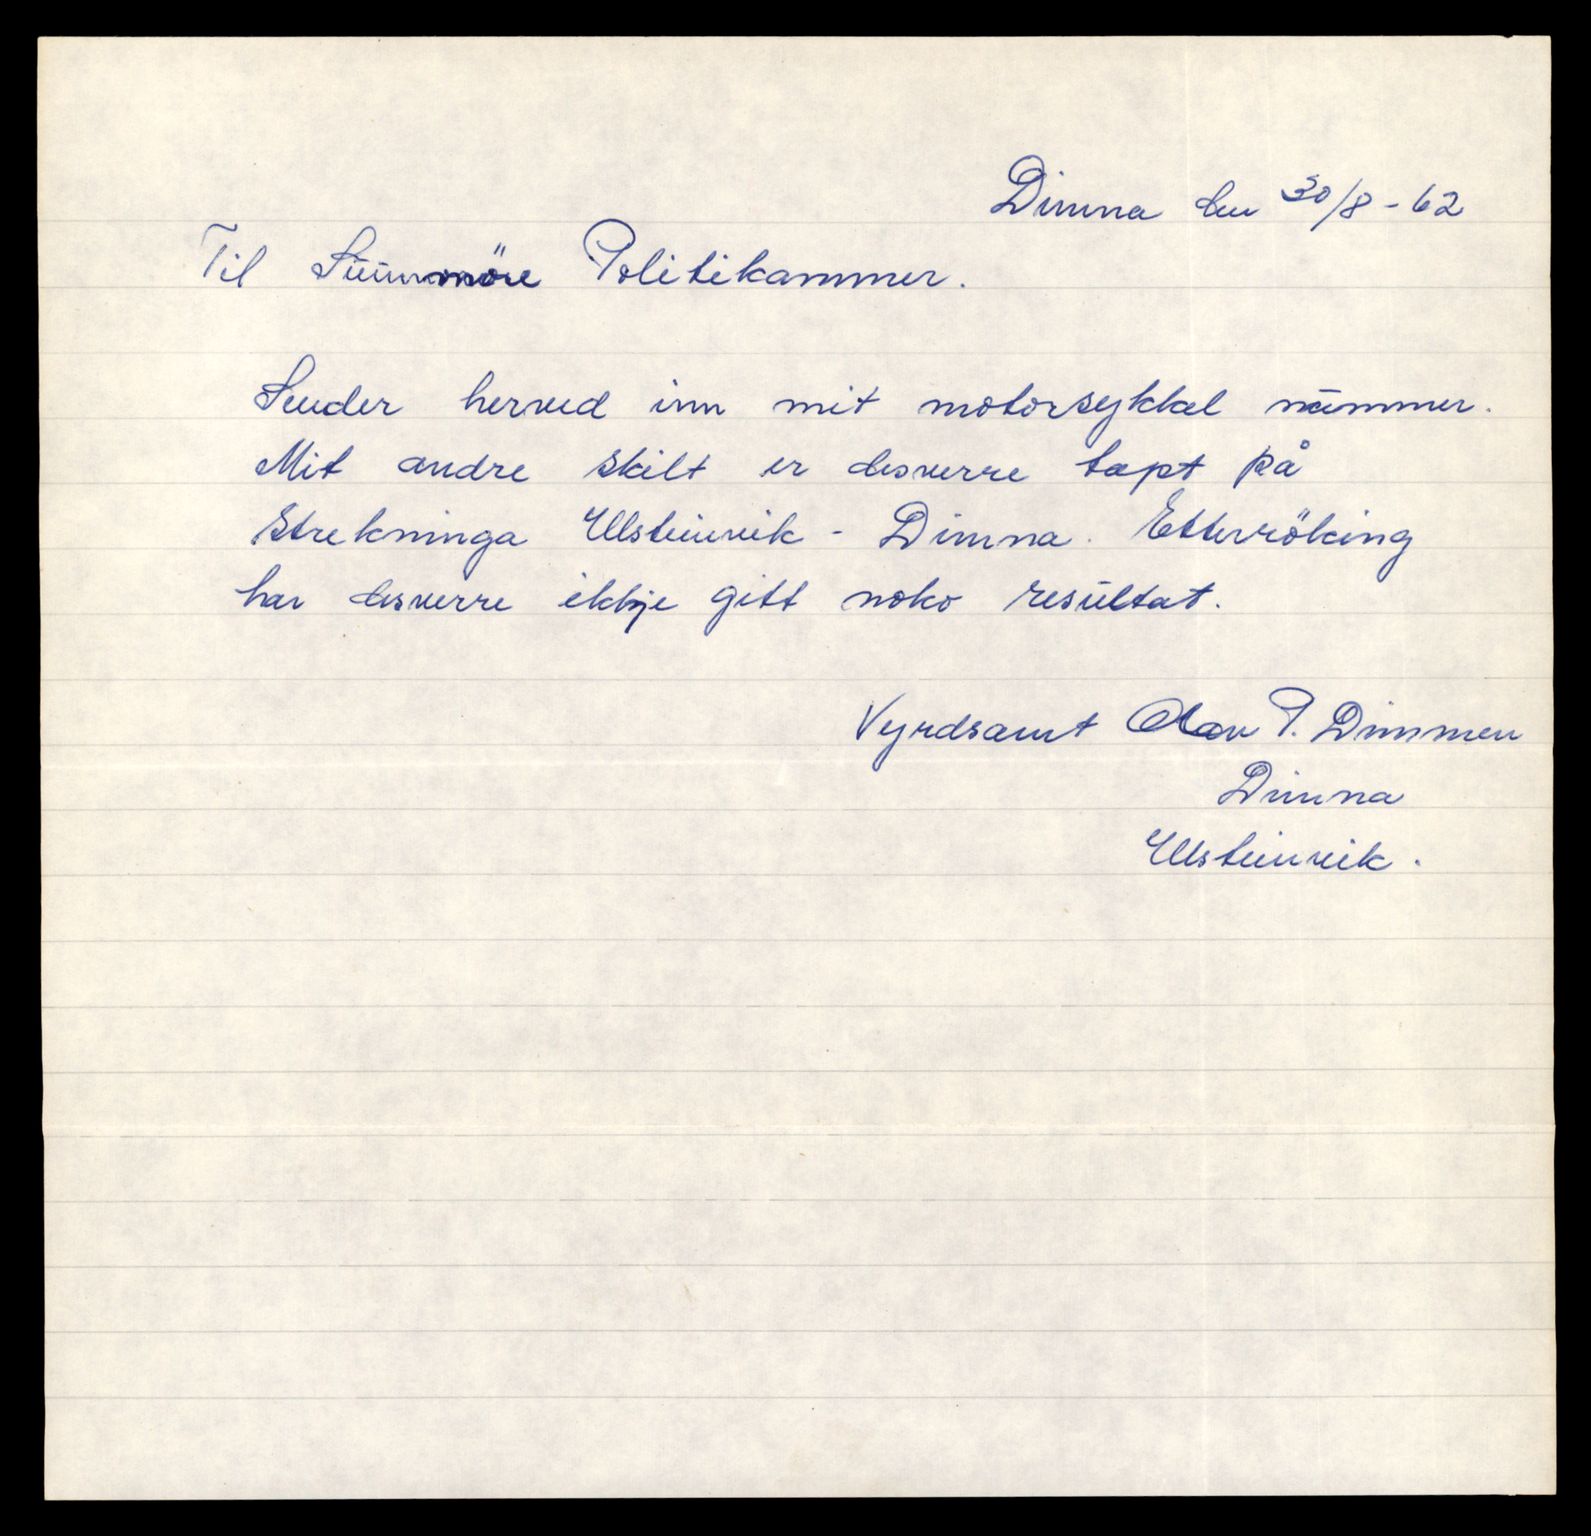 Dimna den 30/8 - 62
Til Sunnmöre Politikammer.
Sender herved inn mit motorsykkel nummer.
Mit andre skilt er desverre tapt på
strekninga Ulsteinvik - Dimna. Etterröking
har desverre ikkje gitt noko resultat.
Vyrdsamt Olav P. Dimmen
Dimna
Ulsteinvik.